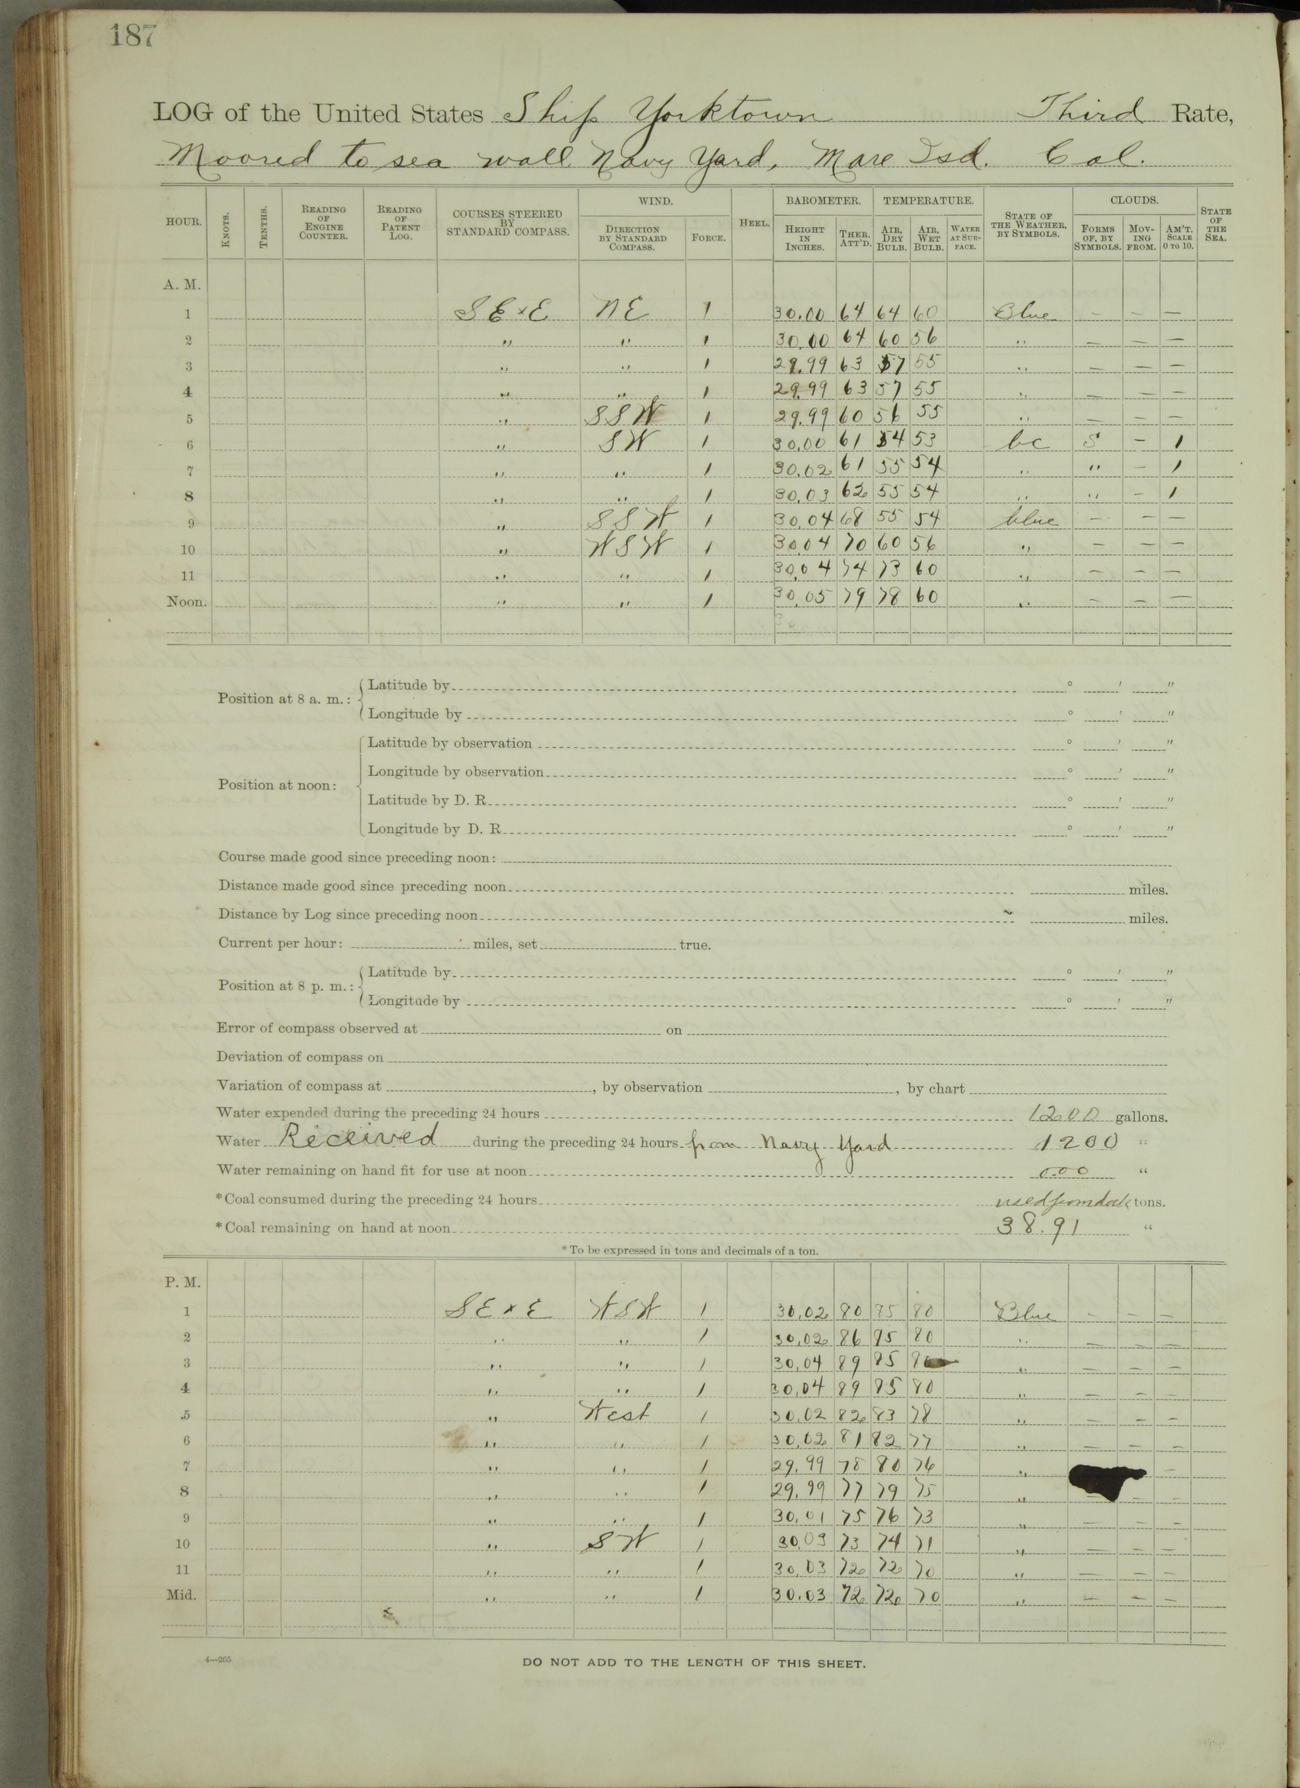 187
LOG of the United States Ship Yorktown Third Rate,
Moored to sea wall Navy Yard, Mare Isd. Cal.
HOUR. KNOTS. TENTHS. READING OF ENGINE COUNTER. READING OF PATENT LOG. COURSES STEERED BY STANDARD COMPASS. WIND. DIRECTION BY STANDARD COMPASS. FORCE. HEEL. BAROMETER. HEIGHT IN INCHES. THER. ATT'D. TEMPERATURE. AIR, DRY BULB. AIR, WET BULB. WATER AT SURFACE. STATE OF THE WEATHER, BY SYMBOLS. CLOUDS. FORMS OF, BY SYMBOLS. MOVING FROM. AM'T. SCALE 0 TO 10. STATE OF THE SEA.
A. M.
1 SE x E NE 1 30.00 64 64 60 Blue — — —
2 " " 1 30.00 64 60 56 " — — —
3 " " 1 29.99 63 57 55 " — — —
4 " " 1 29.99 63 57 55 " — — —
5 " SSW 1 29.99 60 56 55 " — — —
6 " SW 1 30.00 61 54 53 bc S — 1
7 " " 1 30.02 61 55 54 " " — 1
8 " " 1 30.03 62 55 54 " " — 1
9 " SSW 1 30.04 68 55 54 blue — — —
10 " WSW 1 30.04 70 60 56 " — — —
11 " " 1 30.04 74 73 60 " — — —
Noon. " " 1 30.05 79 78 60 " — — —
Position at 8 a. m.: Latitude by ° ' "
Longitude by ° ' "
Latitude by observation ° ' "
Position at noon: Longitude by observation ° ' "
Latitude by D. R. ° ' "
Longitude by D. R. ° ' "
Course made good since preceding noon:
Distance made good since preceding noon miles.
Distance by Log since preceding noon miles.
Current per hour: miles, set true.
Position at 8 p. m.: Latitude by ° ' "
Longitude by ° ' "
Error of compass observed at on
Deviation of compass on
Variation of compass at , by observation , by chart
Water expended during the preceding 24 hours 1200 gallons.
Water Received during the preceding 24 hours from Navy Yard 1200 "
Water remaining on hand fit for use at noon 000 "
*Coal consumed during the preceding 24 hours used from dock tons.
*Coal remaining on hand at noon 38.91 "
*To be expressed in tons and decimals of a ton.
P. M.
1 SE x E WSW 1 30.02 80 85 80 Blue — — —
2 " " 1 30.02 86 95 80 " — — —
3 " " 1 30.04 89 85 " — — —
4 " " 1 30.04 89 85 80 " — — —
5 " West 1 30.02 82 83 78 " — — —
6 " " 1 30.02 81 82 77 " — — —
7 " " 1 29.99 78 80 76 " —
8 " " 1 29.99 77 79 75 " — — —
9 " " 1 30.01 75 76 73 " — — —
10 " SW 1 30.03 73 74 71 " — — —
11 " " 1 30.03 72 72 70 " — — —
Mid. " " 1 30.03 72 72 70 " — — —
4—265
DO NOT ADD TO THE LENGTH OF THIS SHEET.